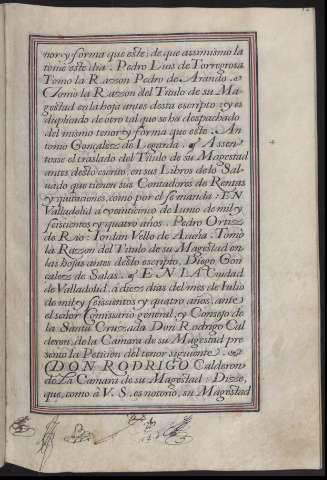 nor y forma que este: de que assimismo la
tome este dia. Pedro Luis de Torregrosa
Tomo la Razon Pedro de Arando.
Como la Razon del Titulo de su Ma-
gestad en la hoja antes desta escripto: y es
duplicado de otro tal que se ha despachado
del mismo tenor y forma que este. An
tonio Gonçalez de Legarda. Assen
tosse el traslado del Titulo de su Magestad
antes desto escrito, en sus Libros de lo Sal-
uado que tienen sus Contadores de Rentas
y quitaciones, como por el se manda: EN
Valladolid a veinticinco de Iunio de mil y
seiscientos y quatro años. Pedro Ortiz
de Rio: Iordan Vello de Acuña. Tomo
la Razon del Titulo de su Magestad en
las hojas antes desto escripto, Diego Gon
zalez de Salas. EN LA Ciudad
de Valladolid, à diez dias del mes de Iulio
de mil y seissientos y quatro años, ante
el señor Comissario general, y Consejo de
la Santa Cruzada Don Rodrigo Cal
deron, de la Camara de su Magestad pre
sento la Petiçion del tenor siguiente.
DON RODRIGO Calderon
de La Camara de su Magestad: Disse,
que, como à V. S. es notorio, su Magestad